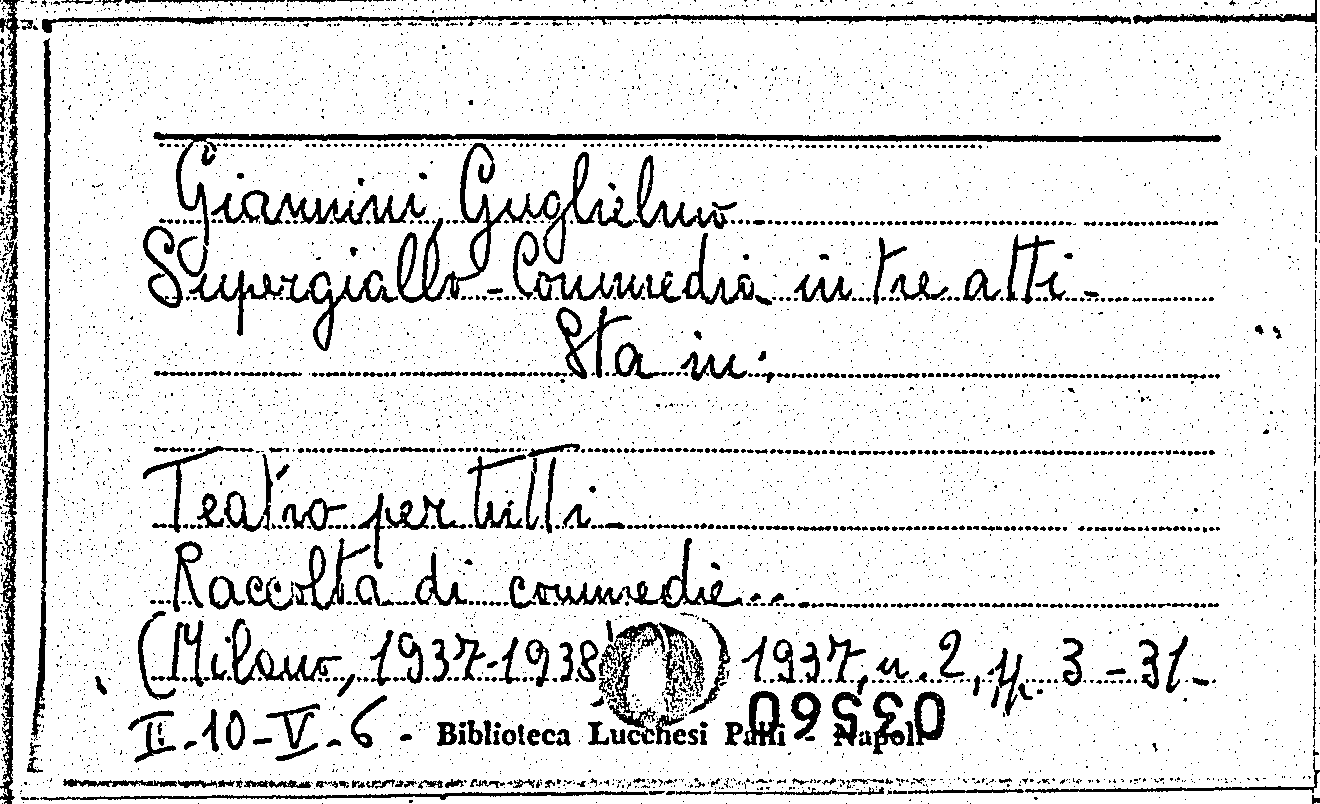 Giannini, Guglielmo
Supergiallo - Commedia in tre atti -
Sta in:
Teatro per tutti -
Raccolta di commedie...
(Milano, 1937-1938) 1937, n. 2, pp. 3 - 31. -
II - 10 - V - 6 - Biblioteca Lucchesi Palli - Napoli